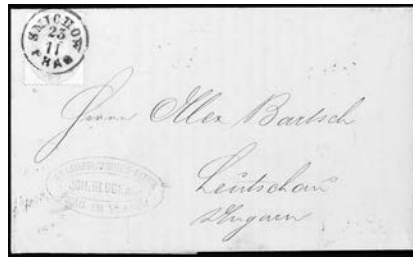 SMICHOW
23
11
PRAG
Herrn Alex Bartsch
Leutschau
Ungarn